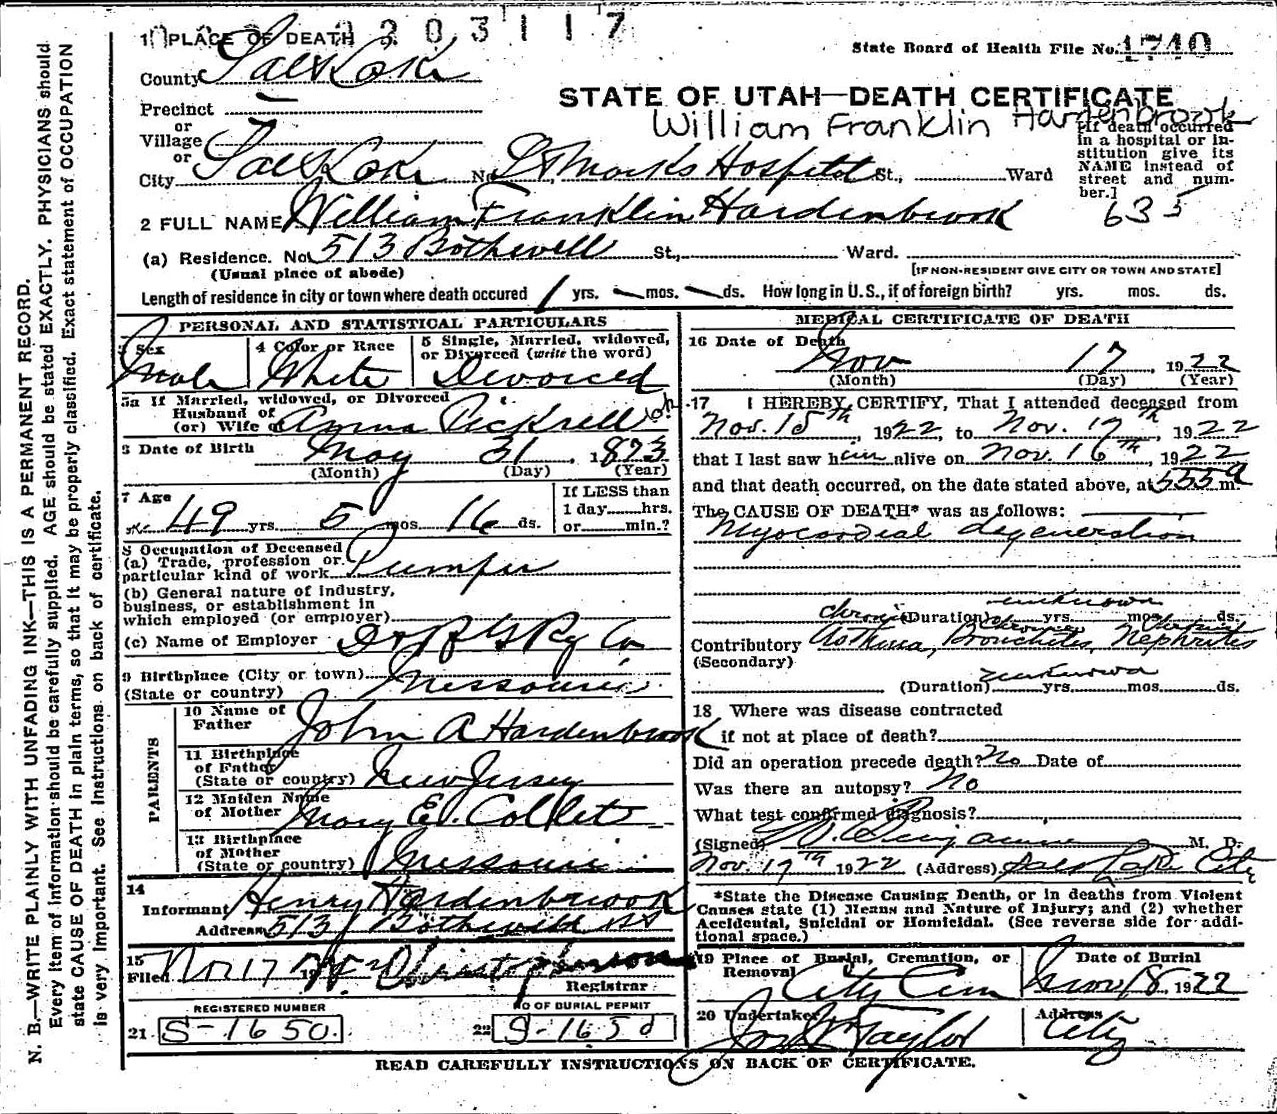 2203117
1 PLACE OF DEATH
State Board of Health File No. 1740
County Salt Lake
STATE OF UTAH—DEATH CERTIFICATE
William Franklin Hardenbrook
Precinct
or
Village
or
City Salt Lake No. St Marks Hospital St., Ward
[If death occurred in a hospital or institution give its NAME instead of street and number.]
635
2 FULL NAME William Franklin Hardenbrook
(a) Residence. No. 513 Bothewell St., Ward.
(Usual place of abode)
[IF NON-RESIDENT GIVE CITY OR TOWN AND STATE]
Length of residence in city or town where death occured 1 yrs. — mos. — ds. How long in U. S., if of foreign birth? yrs. mos. ds.
PERSONAL AND STATISTICAL PARTICULARS
3 Sex
Male
4 Color or Race
White
5 Single, Married, widowed,
or Divorced (write the word)
Divorced
5a If Married, widowed, or Divorced
Husband of
(or) Wife of Anna Pickrell
6 Date of Birth May 31, 1873
(Month) (Day) (Year)
7 Age
49 yrs. 5 mos. 16 ds.
If LESS than
1 day......hrs.
or......min.?
8 Occupation of Deceased
(a) Trade, profession or
particular kind of work Pumper
(b) General nature of Industry,
business, or establishment in
which employed (or employer)
(c) Name of Employer D & R G Ry Co
9 Birthplace (City or town)
(State or country) Missouri
PARENTS
10 Name of
Father John A Hardenbrook
11 Birthplace
of Father
(State or country) New Jersey
12 Maiden Name
of Mother Mary E. Collet
13 Birthplace
of Mother
(State or country) Missouri
14
Informant Henry Hardenbrook
Address 513 Bothewell St
15
Filed Nov 17 Registrar
REGISTERED NUMBER
21 S-1650.
NO OF BURIAL PERMIT
22 S-1650
MEDICAL CERTIFICATE OF DEATH
16 Date of Death
Nov 17, 1922
(Month) (Day) (Year)
17 I HEREBY CERTIFY, That I attended deceased from
Nov. 15th, 1922, to Nov. 17th, 1922
that I last saw him alive on Nov. 16th, 1922
and that death occurred, on the date stated above, at 555 a m.
The CAUSE OF DEATH* was as follows:
Myocardial degeneration
(Duration) unknown yrs. mos. ds.
Contributory chronic Asthma, chronic Bronchitis, chronic Nephritis
(Secondary)
(Duration) unknown yrs. mos. ds.
18 Where was disease contracted
if not at place of death?
Did an operation precede death? No Date of
Was there an autopsy? No
What test confirmed diagnosis?
(Signed) Benjamin M. D.
Nov. 17th 1922 (Address) Salt Lake City
*State the Disease Causing Death, or in deaths from Violent
Causes state (1) Means and Nature of Injury; and (2) whether
Accidental, Suicidal or Homicidal. (See reverse side for addi-
tional space.)
19 Place of Burial, Cremation, or
Removal
City Cem
Date of Burial
Nov 18, 1922
20 Undertaker
Jos Wm Taylor
Address
City
READ CAREFULLY INSTRUCTIONS ON BACK OF CERTIFICATE.
N. B.—WRITE PLAINLY WITH UNFADING INK—THIS IS A PERMANENT RECORD.
Every item of information should be carefully supplied. AGE should be stated EXACTLY. PHYSICIANS should
state CAUSE OF DEATH in plain terms, so that it may be properly classified. Exact statement of OCCUPATION
is very important. See instructions on back of certificate.